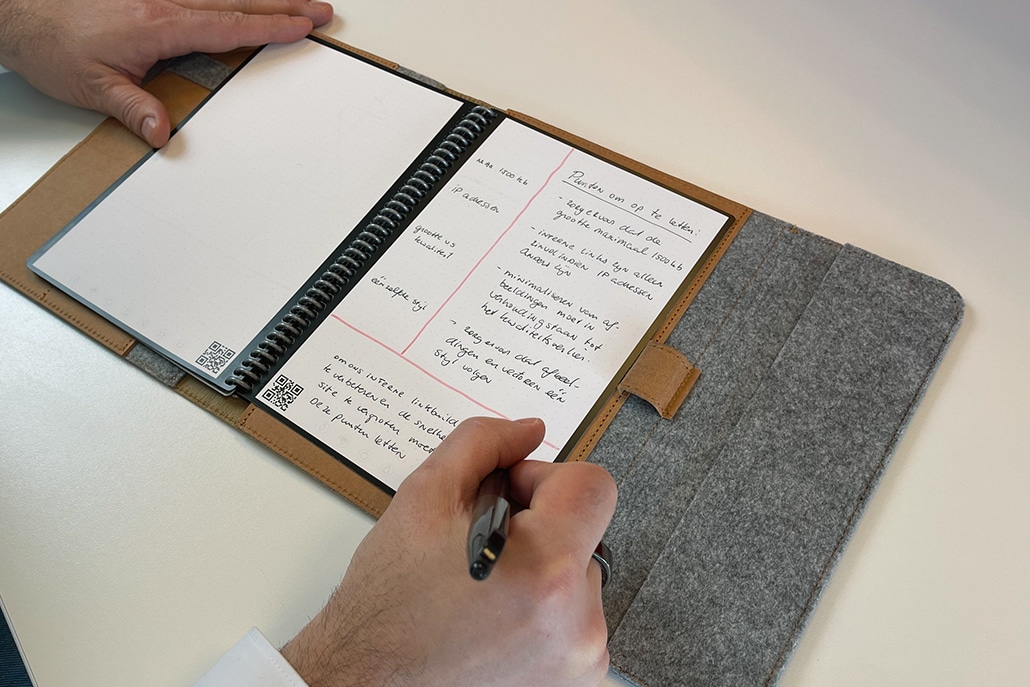 MAX 1500 kb
ip adressen
grootte vs
kwaliteit
"één zelfde stijl
Punten om op te letten:
- zorg ervoor dat de
grootte maximaal 1500 kb
- interne links zijn alleen
in IP adressen
- minimaliseren van af-
beeldingen moet in
verhouding staan tot
het kwaliteitsverlies
- zorg ervoor dat afbeel-
dingen en vectoren één
stijl volgen
om ons interne linkbuild
te verbeteren en de snelhe
site te vergroten moe
deze punten letten